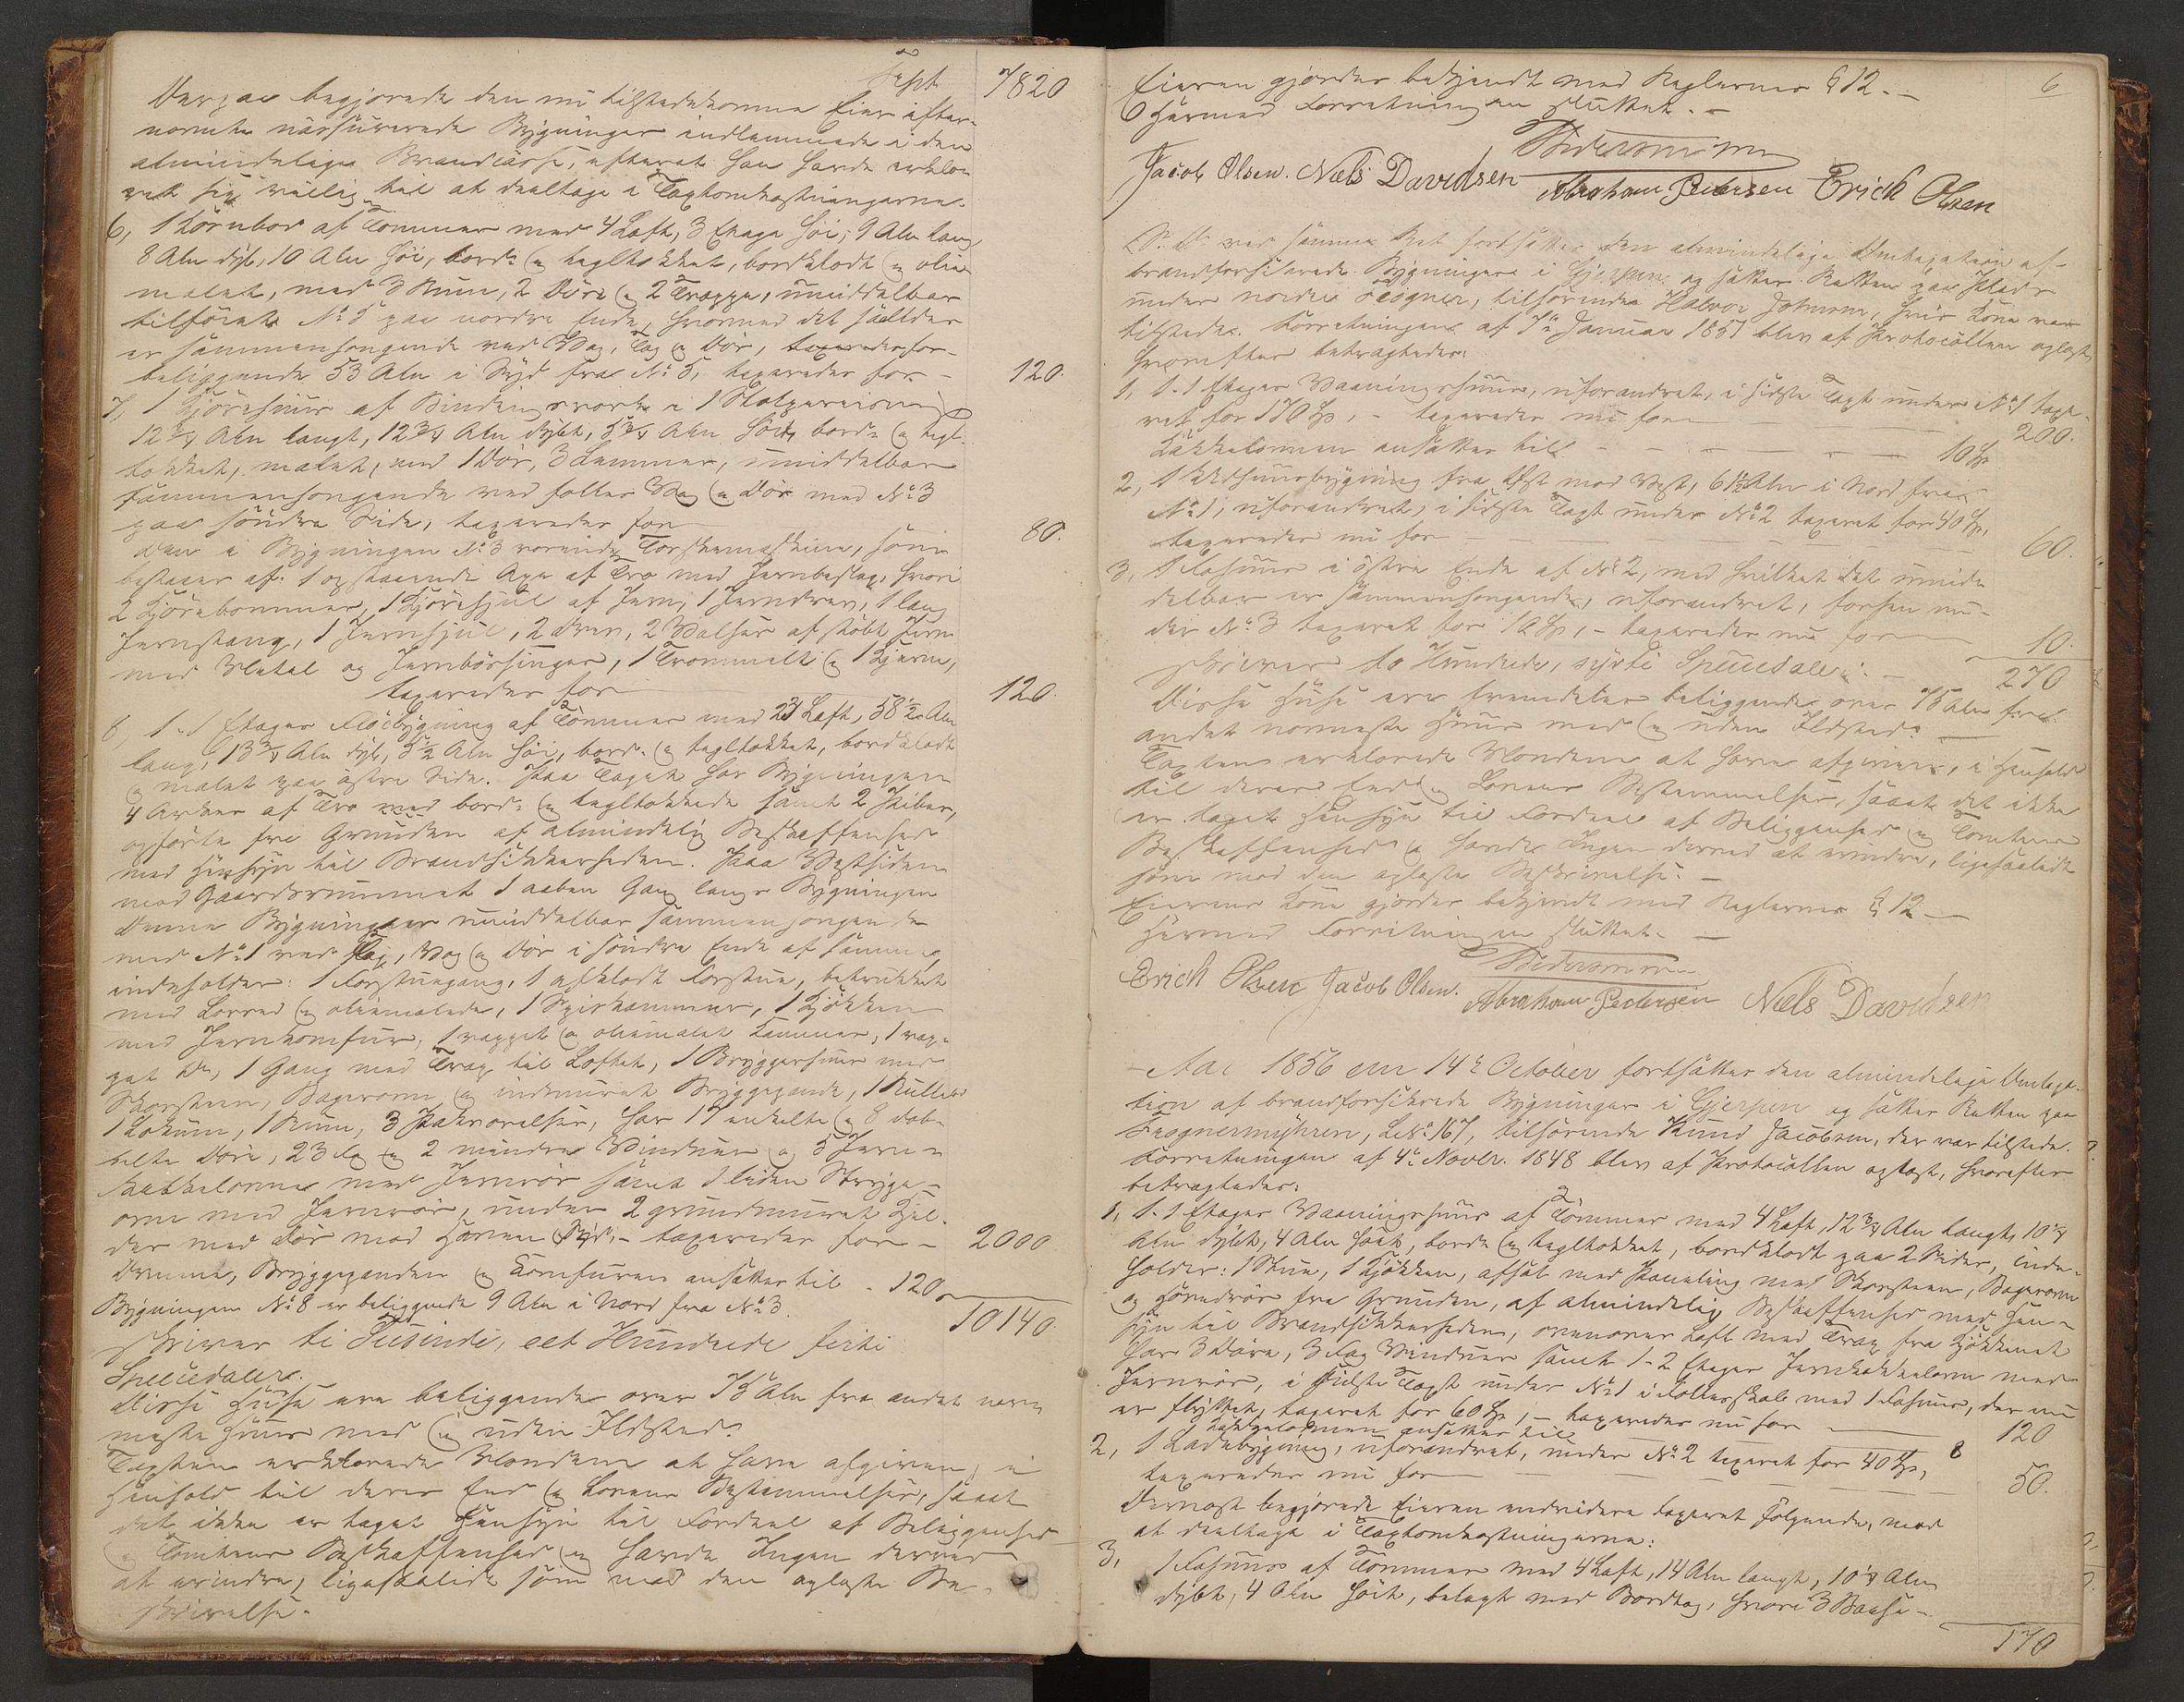 Trspt 7820
Derpaa begjærede den nu tilstedekomne Eier efter-
nævnte uassurerede Bygninger indlemmede i den
almindelige Brandcasse, efterat han havde erklæ-
ret sig villig til at deeltage i Taxtomkostningerne.
6, 1 Kornbod af Tømmer med 4 Laft, 3 Etage høi, 9 Alen lang
8 Alen dyb, 10 Alen høi, bord- og tegltækket, bordklædt og olie-
malet, med 3 Rum, 2 Døre og 2 Trapper, umiddelbar
tilføiet No 5 paa nordre Ende, hvormed det saaledes
er sammenhængende ved Væg, Tag og Dør,
beliggende 53 Alen i Syd fra No 5, taxeredes for - 120.
7, 1 Kjørehuus af Bindingsværk i 1 Stolpereisning
12 3/4 Alen langt, 12 3/4 Alen dybt, 5 3/4 Alen høit, bord- og tegl-
tækket, malet, med 1 Dør, 3 Lemmer, umiddelbar
sammenhængende ved fælles Væg og Dør med No 3
paa søndre Side, taxeredes for 80.
Den i Bygningen No 3 værende Tærskemaskine, som
bestaaer af: 1 opstaaende Axe af Træ med Jernbeslag, hvori
2 Kjørebommer, 1 Kjørehjul af Jern, 1 Jerndrev, 1 lang
Jernstang, 1 Jernhjul, 2 Drev, 2 Valser af støbt Jern
med Metal og Jernbøsninger, 1 Trommel og 1 Kjerne,
taxeredes for 120.
8, 1-1 Etages Fløibygning af Tømmer med 23 Laft, 58 1/2 Alen
lang, 13 3/4 Alen dyb, 5 1/2 Alen høi, bord- og tegltækket, bordklædt
og malet paa østre Side. Paa Taget har Bygningen
4 Arker af Træ med bord- og tegltækkede samt 2 Piber,
opførte fra Grunden af almindelig Beskaffenhed
med Hensyn til Brandsikkerheden. Paa Vestsiden
mod Gaardsrummet 1 aaben Gang langs Bygningen
Denne Bygning er umiddelbar sammenhængende
med No 1 ved Tag, Væg og Dør i søndre Ende af samme,
indeholder: 1 Forstuegang, 1 afklædt Forstue, betrukket
med Lærred og oliemalede, 1 Spiskammer, 1 Kjøkken
med Jernkomfur, 1 rappet og oliemalet Kammer, 1 rap-
pet Do, 1 Gang med Trap til Loftet, 1 Bryggerhuus med
Skorsteen, Bagerovn og indmuret Bryggepande, 1 Rullebod
1 Lokum, 1 Rum, 3 Pakværelser, har 17 enkelte og 8 dob-
belte Døre, 23 Fag og 2 mindre Vinduer og 5 Jern-
kakkelovne med Jernrør samt 1 liden Stryge-
ovn med Jernrør, under 2 grundmuret Kjel-
der med Dør mod Haven Syd, - taxeredes for - 2000
Ovnene, Bryggepanden og Komfuren ansættes til - 120
Bygningen No 8 er beliggende 9 Alen i Nord fra No 3. 10140.
skriver ti Tusinde, eet Hundrede firti
Speciedaler.
Disse Huse ere beliggende over 75 Alen fra andet nær-
meste Huus med og uden Ildsted.
Taxten erklærede Mændene at have afgiven, i
Henhold til deres Eed og Lovens Bestemmelser, saaat
det ikke er taget Hensyn til Fordeel af Beliggenhed
og Tomtens Beskaffenhed og havde Ingen derved
at erindre, ligesaalidt som ved den oplæste Be-
skrivelse.
6
Eieren gjordes bekjendt med Reglernes § 12. -
Hermed Forretningen sluttet. -
Pedersen mm
Jacob Olsen. Niels Davidsen Abraham Pedersen Erich Olsen
S. D. ved samme Ret fortsættes den almindelige Omtaxation af
brandforsikrede Bygninger i Gjerpen og sættes Retten paa Plads
under nordre Frogner, tilhørende Halvor Johnsen, hvis Kone var
tilstede. Forretningen af 7de Januar 1851 blev af Protocollen oplæst,
hvorefter betragtedes:
1, 1-1 Etages Vaaningshuus, uforandret, i sidste Taxt under No 1 taxe-
ret for 170 Sp, - taxeredes nu for 200.
Kakkelovnen ansættes til - - - - - 10 Sp
2, 1 Udhuusbygning fra Øst mod Vest, 6 1/2 Alen i Nord fra
No 1, uforandret, i sidste Taxt under No 2 taxeret for 40 Sp,
taxeredes nu for - - - 60.
3, 1 Fæhuus i østre Ende af No 2, med hvilket det umid-
delbar er sammenhængende, uforandret, forhen un-
der No 3 taxeret for 10 Sp, - taxeredes nu for 10.
skriver to Hundrede, sytti Speciedaler. - 270
Disse Huse ere fremdeles beliggende over 75 Alen fra
andet nærmeste Huus med og uden Ildsted. -
Taxten erklærede Mændene at have afgiven, i Henhold
til deres Eed og Lovens Bestemmelser, saaat det ikke
er taget Hensyn til Fordeel af Beliggenhed og Tomtens
Beskaffenhed og havde Ingen derved at erindre, ligesaalidt
som ved den oplæste Beskrivelse. -
Eierens Kone gjordes bekjendt med Reglernes § 12 -
Hermed Forretningen sluttet. -
Pedersen mm
Erich Olsen Jacob Olsen. Abraham Pedersen Niels Davidsen
- Aar 1856 den 14de October fortsættes den almindelige Omtaxa-
tion af brandforsikrede Bygninger i Gjerpen og sættes Retten paa
Frognermyhren, Lbno 167, tilhørende Knud Jacobsen, der var tilstede.
Forretningen af 4de Novbr. 1848 blev af Protocollen oplæst, hvorefter
betragtedes:
1, 1-1 Etages Vaaningshuus af Tømmer med 4 Laft, 12 3/4 Alen langt, 10 1/4
Alen dybt, 4 Alen høit, bord- og tegltækket, bordklædt paa 2 Sider, inde-
holder: 1 Stue, 1 Kjøkken, afsat med Paneling med Skorsteen, Bagerovn
og Hovedrør fra Grunden, af almindelig Beskaffenhed med Hen-
syn til Brandsikkerheden, ovenover Loft med Trap fra Kjøkkenet
har 3 Døre, 3 Fag Vinduer samt 1-2 Etages Jernkakkelovn med
Jernrør, i sidste Taxt under No 1 i Fællesskab med 1 Fæhuus, der nu
er flyttet, taxeret for 60 Sp, - taxeredes nu for 120
Kakkelovnen ansættes til 8
2, 1 Ladebygning, uforandret, under No 2 taxeret for 40 Sp,
taxeredes nu for - - - 50.
Dernæst begjærede Eieren endvidere taxeret Følgende, mod
at deeltage i Taxtomkostningerne:
3, 1 Fæhuus af Tømmer med 4 Laft, 14 Alen langt, 10 1/4 Alen
dybt, 4 Alen høit, belagt med Bordtag, hvori 3 Baase -
170